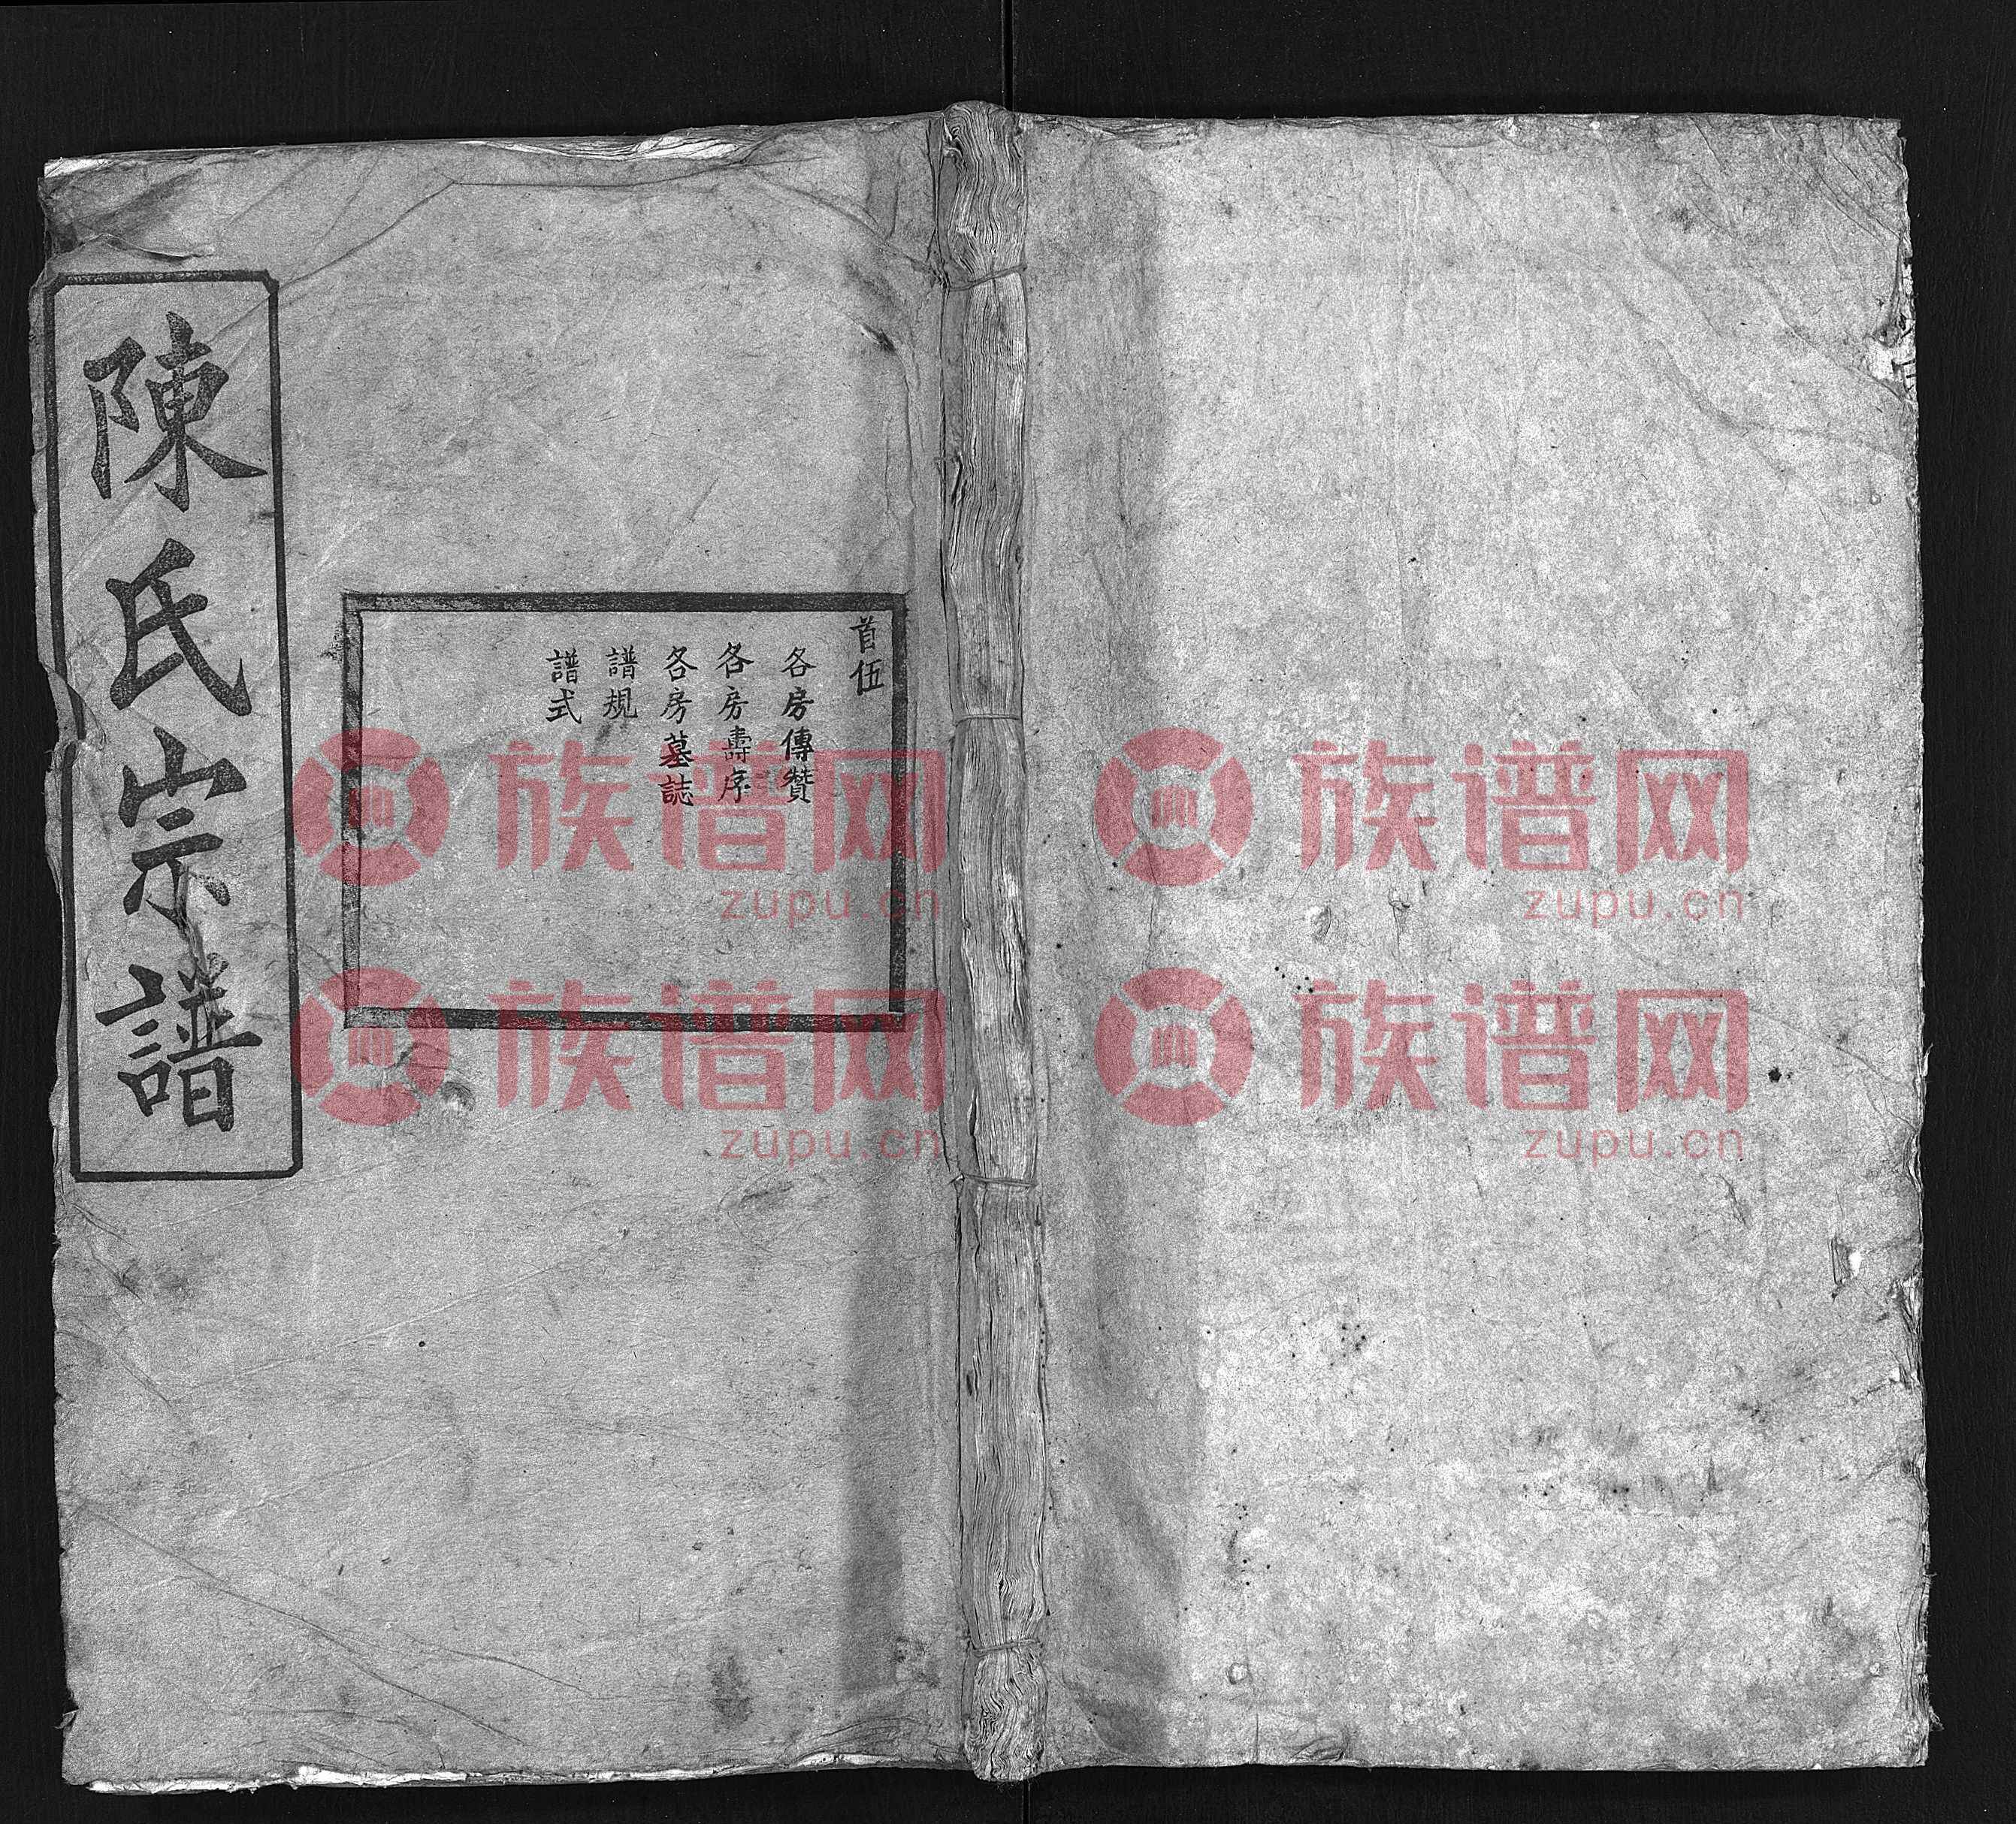 陳氏宗譜
首伍
各房傳贊
各房壽序
各房墓誌
譜規
譜式
族谱网
zupu.cn
族谱网
zupu.cn
族谱网
zupu.cn
族谱网
zupu.cn